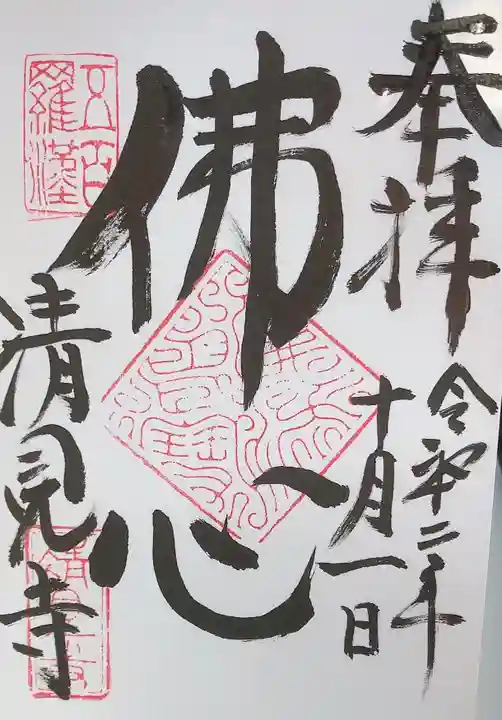 奉拝
令和二年
十月一日
佛心
五百
羅漢
清見寺